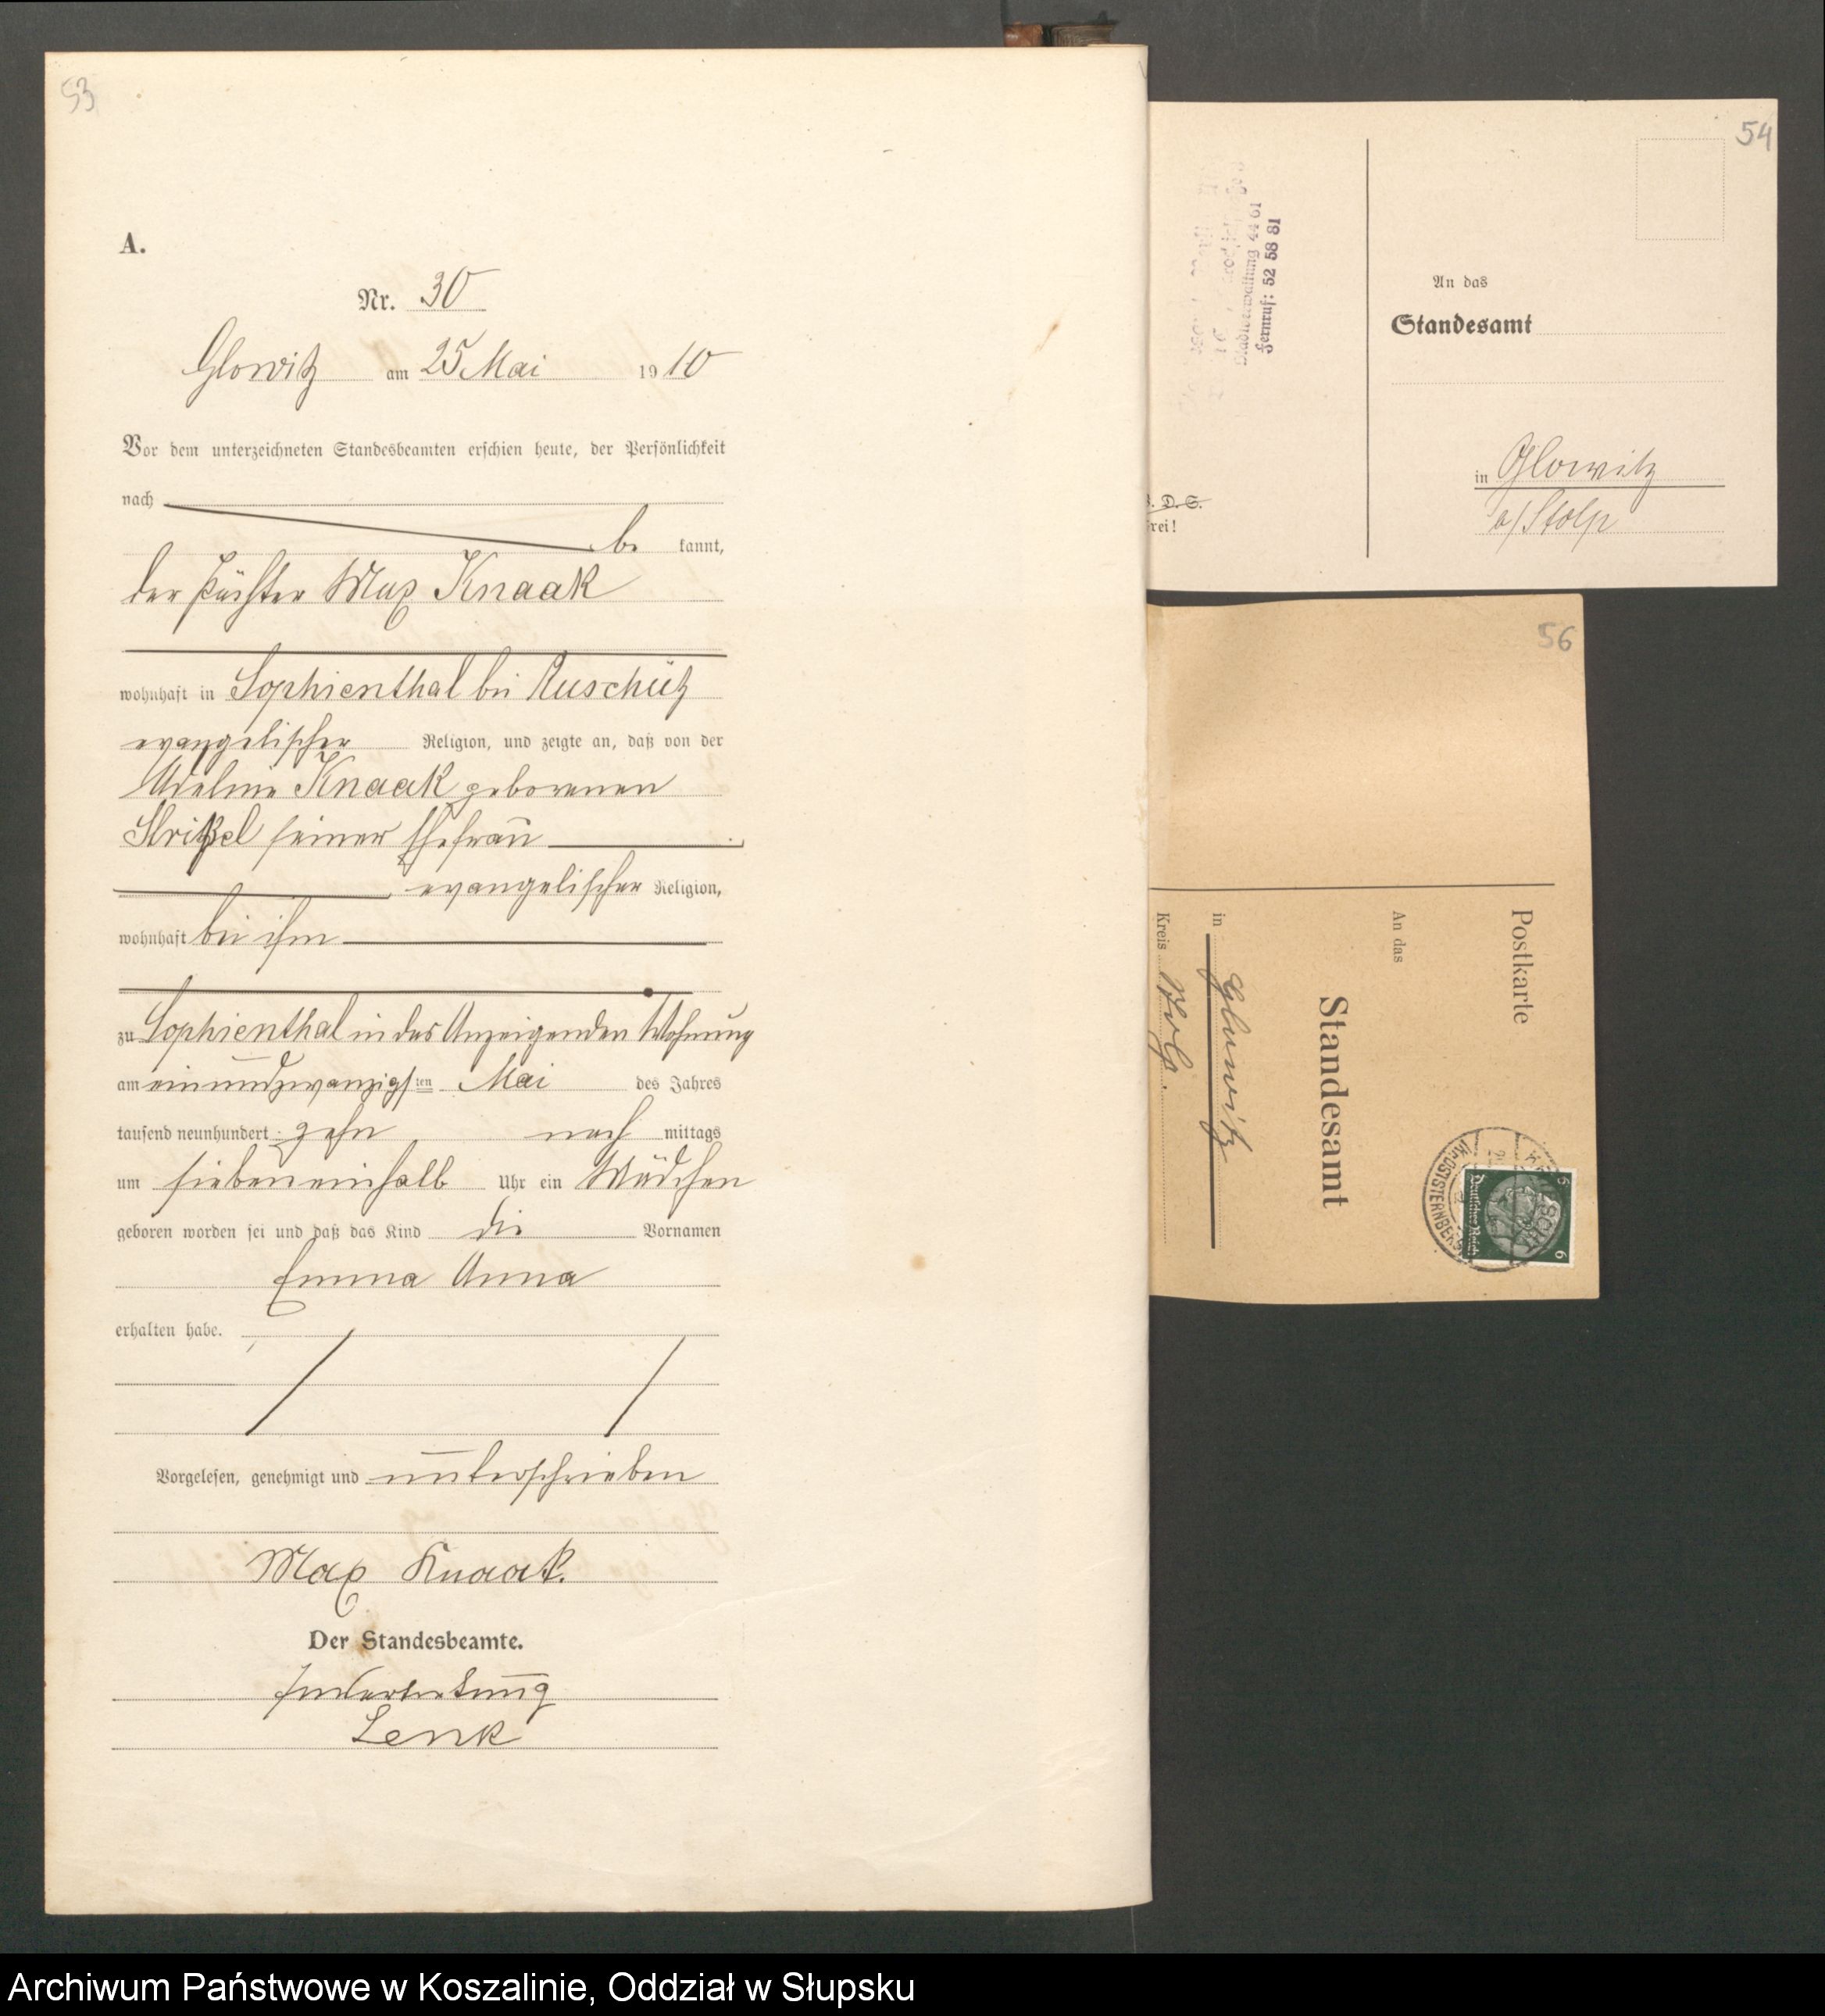 53
A.
Nr. 30
Glowitz am 25 Mai 1910
Vor dem unterzeichneten Standesbeamten erschien heute, der Persönlichkeit
nach
be kannt,
der Pächter Max Knaak
wohnhaft in Sophienthal bei Ruschütz
evangelischer Religion, und zeigte an, daß von der
Knaak geborenen
seiner Ehefrau
evangelischer Religion,
wohnhaft bei ihm
zu Sophienthal in des Anzeigenden Wohnung
am einundzwanzigsten Mai des Jahres
tausend neunhundert zehn nach mittags
um siebeneinhalb Uhr ein Mädchen
geboren worden sei und daß das Kind die Vornamen
Emma Anna
erhalten habe.
Vorgelesen, genehmigt und unterschrieben
Max Knaak.
Der Standesbeamte.
In Vertretung
Lenk
54
Stadtverwaltung 44 61
Fernruf: 52 58 81
An das
Standesamt
in Glowitz
a/Stolp
B. D. S.
frei!
56
Postkarte
An das
Standesamt
in Glowitz
Kreis Stolp.
(KR. OSTSTERNBERG)
Deutsches Reich
6
6
Archiwum Państwowe w Koszalinie, Oddział w Słupsku